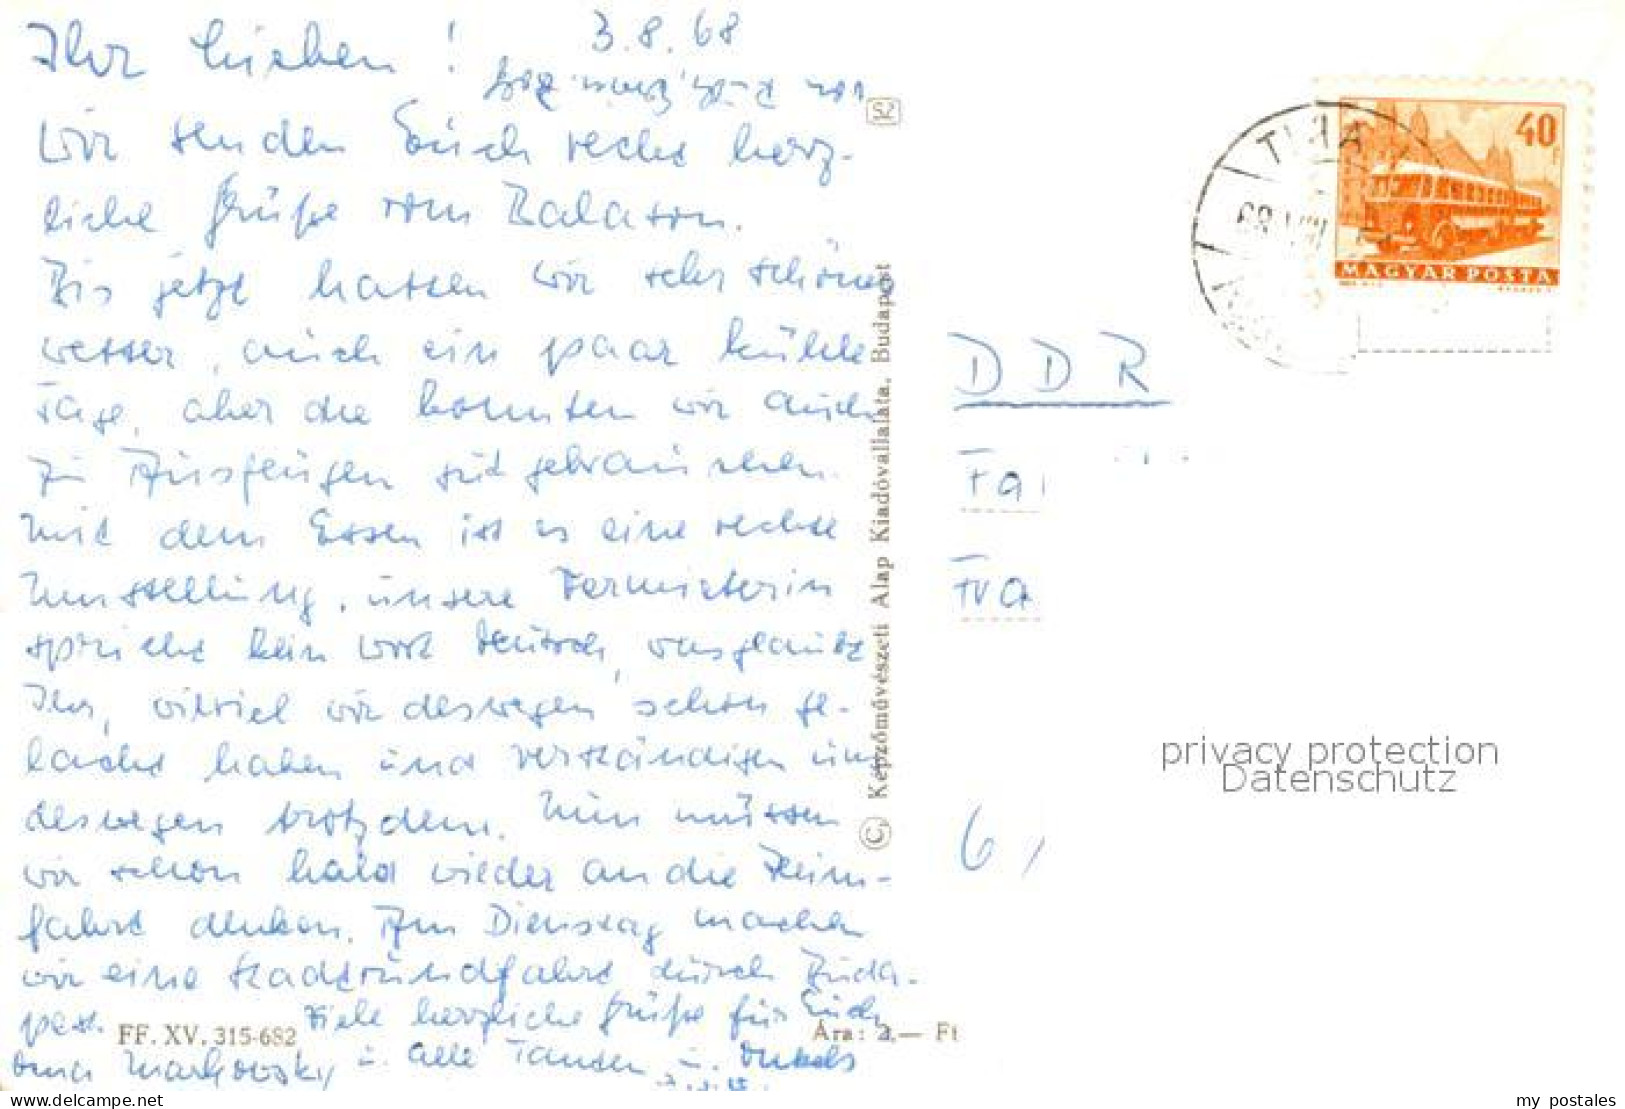 Ihr Lieben! 3.8.68
Wir senden Euch recht herz-
liche Grüße vom Balaton.
Bis jetzt hatten wir sehr schönes
Wetter, auch ein paar kühle
Tage, aber die konnten wir auch
zu Ausflügen gut gebrauchen.
Mit dem Essen ist es eine rechte
Umstellung, unsere Vermieterin
spricht kein Wort deutsch, was glaubt
Ihr, wieviel wir deswegen schon ge-
lacht haben und verständigen uns
deswegen trotzdem. Nun müssen
wir schon bald wieder an die Heim-
fahrt denken. Am Dienstag machen
wir eine Stadtrundfahrt durch Buda-
pest. Viele herzliche Grüße für Euch
Oma Markowsky u. alle Tanten u. Onkels
FF. XV. 315-682
Ára: 2,— Ft
SZ
© Képzőművészeti Alap Kiadóvállalata, Budapest
40 F
MAGYAR POSTA
DDR
privacy protection
Datenschutz
6
my_postales